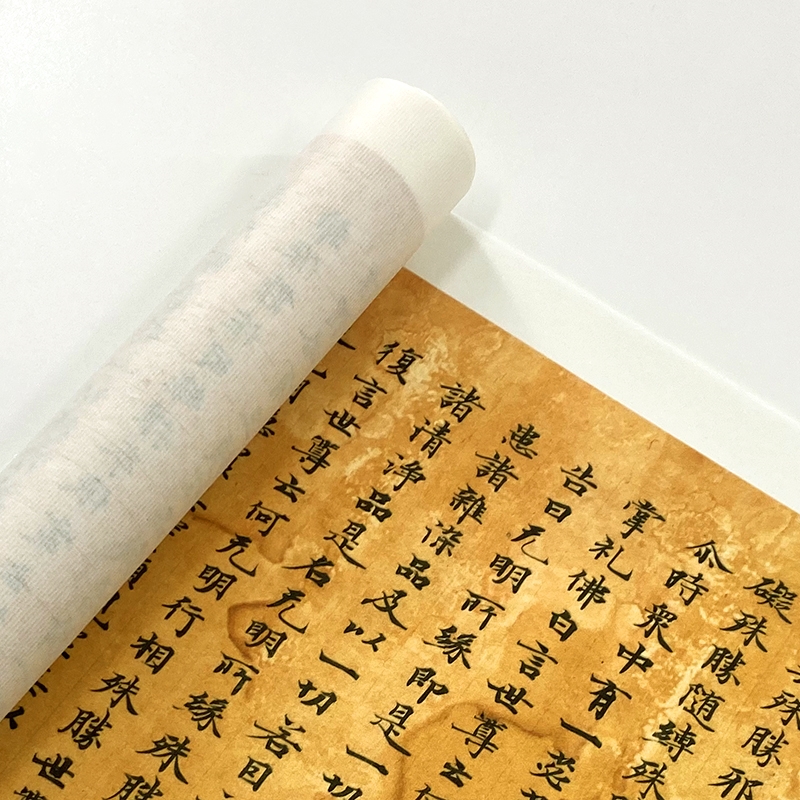 殊勝邪
礙殊勝随縛殊
尒時衆中有一苾
掌礼佛白言世尊云何
告曰无明所緣即是一切
患諸雜染品及以一切若曰
諸清淨品是名无明所緣殊勝
復言世尊云何无明行相殊勝世尊